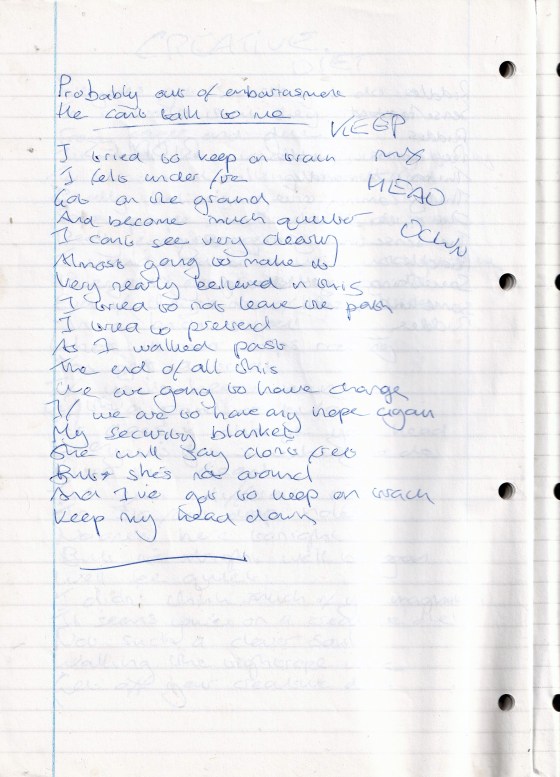 Probably out of embarrasment
He cant talk to me
KEEP
MY
HEAD
DOWN
I tried to keep on track
I felt under fire
Got on the ground
And become much quieter
I cant see very clearly
Almost going to make it
Very nearly believed in this
I tried to not leave the path
I tried to pretend
As I walked past
The end of all this
We are going to have change
If we are to have any hope again
My security blanket
She will say dont fret
But she's not around
And I've got to keep on track
Keep my head down